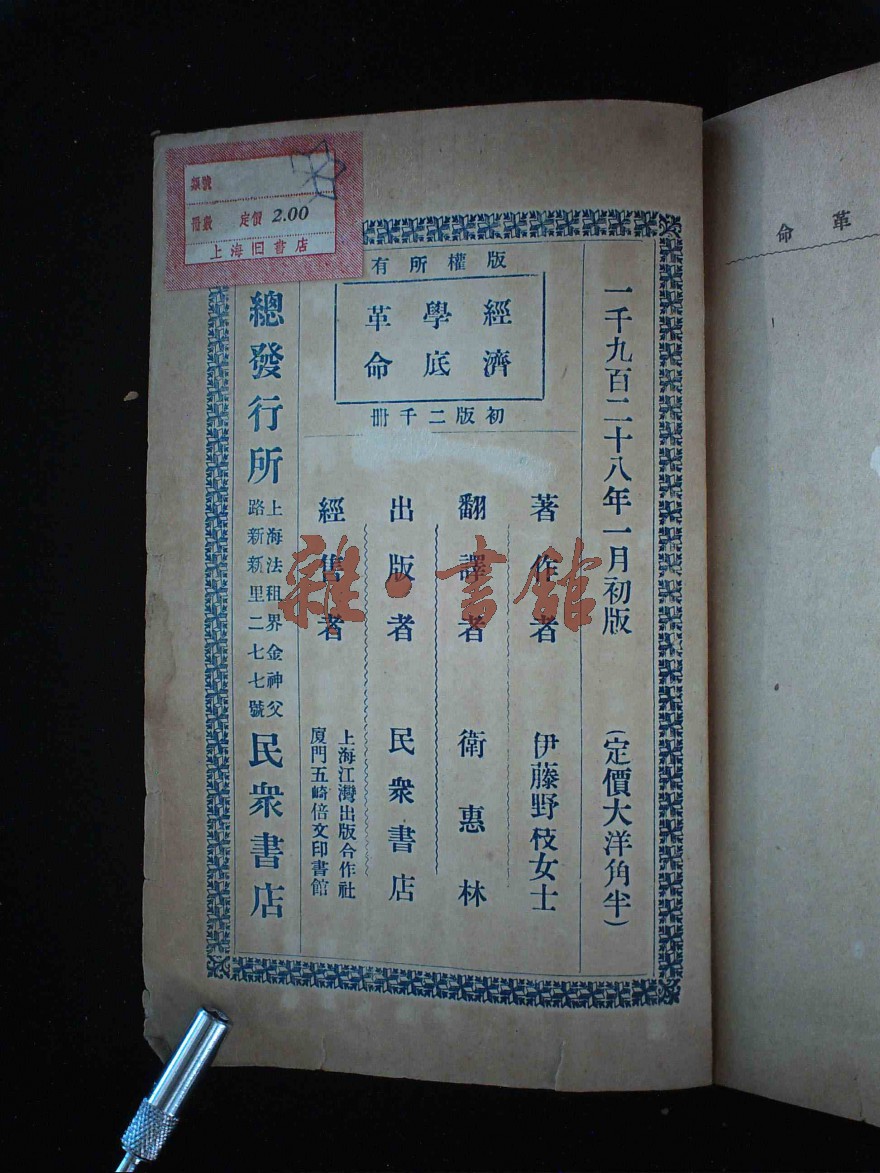 類號
冊數 定價 2.00
上海旧書店
版權所有
經濟
學底
革命
初版二千冊
一千九百二十八年一月初版 (定價大洋角半)
著作者 伊藤野枝女士
翻譯者 衛惠林
出版者 民衆書店
經售者 上海江灣出版合作社
廈門五崎倍文印書館
總發行所 上海法租界金神父
路新新里二七七號 民衆書店
雜·書館
革命